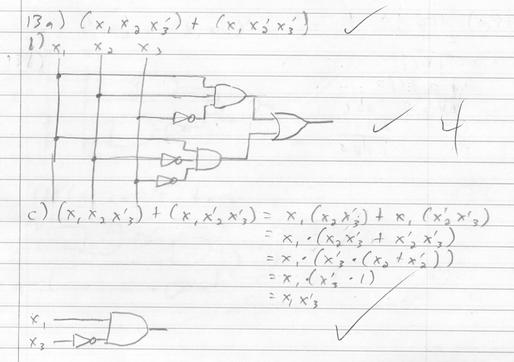 13 a) (x₁ x₂ x₃') + (x₁ x₂' x₃')
b) x₁ x₂ x₃
4
c) (x₁ x₂ x₃') + (x₁ x₂' x₃') = x₁ (x₂ x₃') + x₁ (x₂' x₃')
= x₁ · (x₂ x₃' + x₂' x₃')
= x₁ · (x₃' · (x₂ + x₂'))
= x₁ · (x₃' · 1)
= x₁ x₃'
x₁
x₃